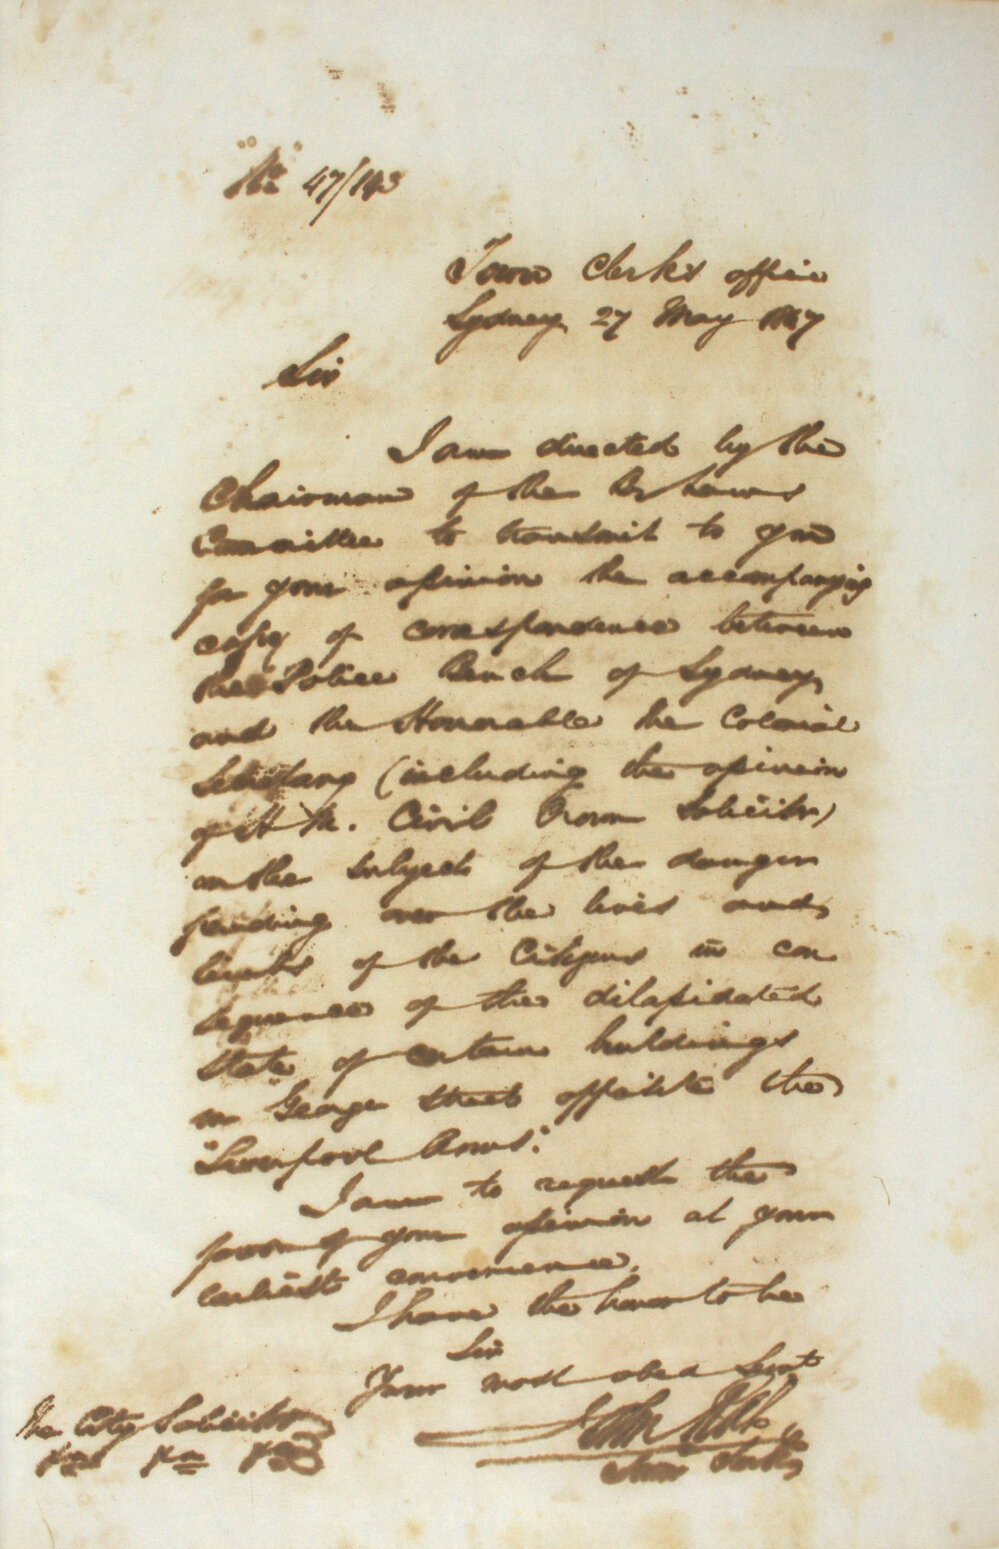 No 47/143
Town Clerks office
Sydney 27 May 1847
Sir
I am directed by the
Chairman of the By Laws
Committee to transmit to you
for your opinion the accompanying
copy of correspondence between
the Police Bench of Sydney
and the Honorable the Colonial
Secretary (including the opinion
of H M. Civil Crown Solicitor)
on the subject of the danger
pending over the lives and
limbs of the Citizens in con
sequence of the dilapidated
state of certain buildings
in George Street opposite the
"Liverpool Arms".
I am to request the
favor of your opinion at your
earliest convenience.
I have the honor to be
Sir
Your most obed Servt
John
Town Clerk
The City Solicitor